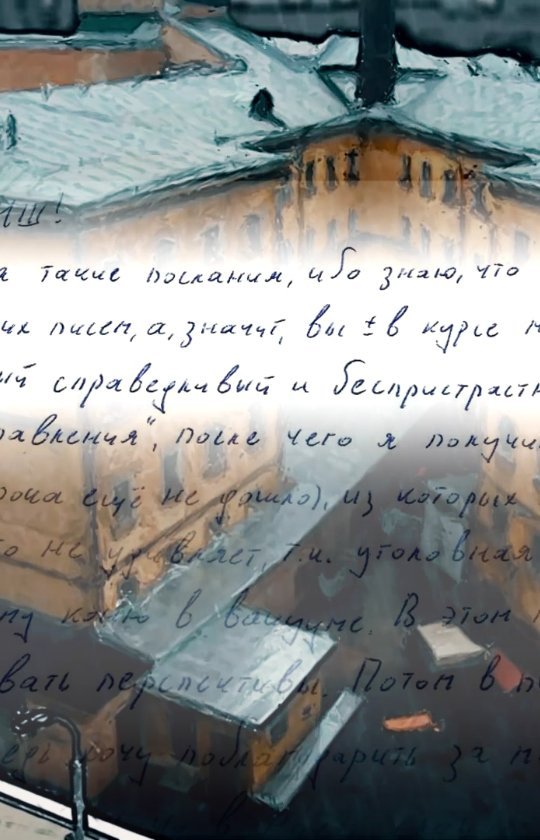 иш!
а такие послания, ибо знаю, что
их писем, а, значит, вы ± в курсе н
ый справедливый и беспристрастн
равления", после чего я получи
рока ещё не дошло), из которых
то не удивляет, т.к. уголовная
ну коню в вакууме. В этом
вать перспективы. Потом в п
ерь хочу поблагодарить за п